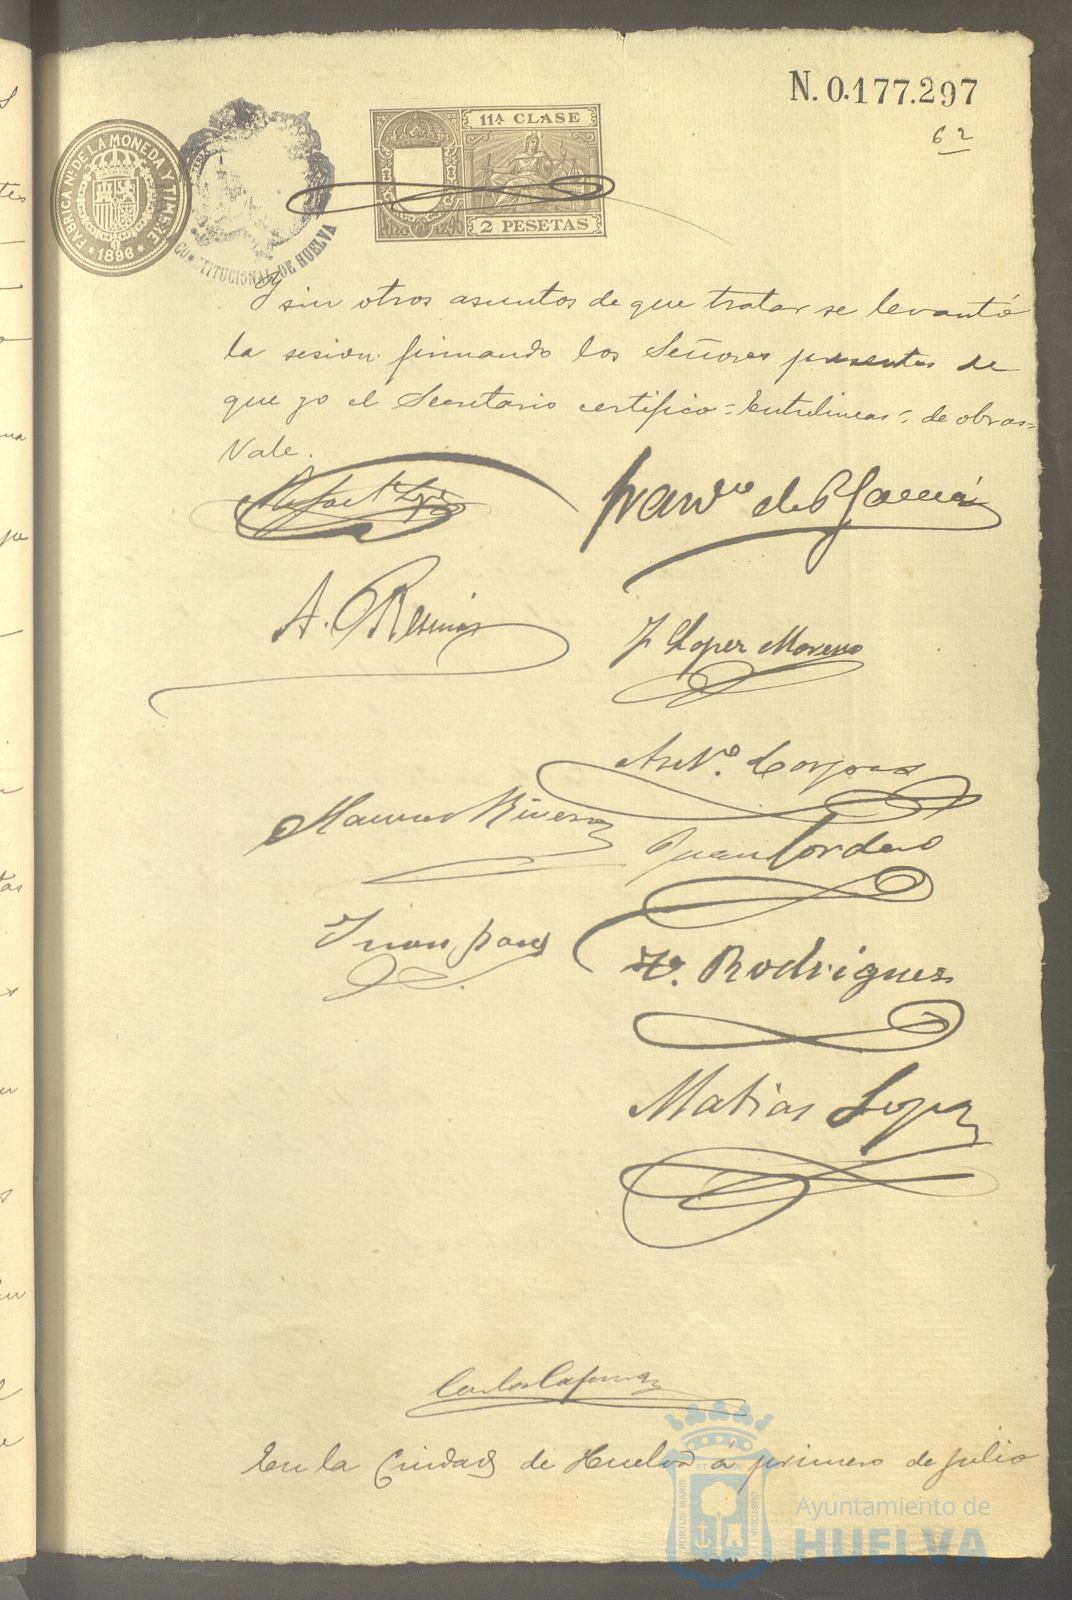 N. 0.177.297
62
FABRICA Nal DE LA MONEDA Y TIMBRE
* 1896 *
CONSTITUCIONAL DE HUELVA
11ª CLASE
AÑO 1896
2 PESETAS
Y sin otros asuntos de que tratar se levantó
la sesion firmando los Señores presentes de
que yo el Secretario certifico = Entrelineas = de obras =
Vale.
de P. García
A.
J Lopez Moreno
Antº.
Rivera
Juan Cordero
Juan
Rodriguez
Matias Lopez
Carlos
En la Ciudad de Huelva á primero de julio
PORTUS MARIS ET TERRAE CUSTODIA
Ayuntamiento de
HUELVA